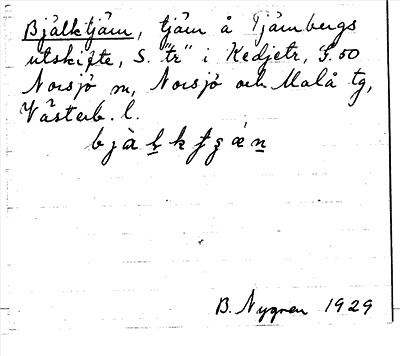 Bjälktjärn, tjärn å Tjärnbergs
utskifte, S. "tr" i Kedjetr, S.50
Norsjö sn, Norsjö och Malå tg,
Västerb. l.
B. Nygren 1929